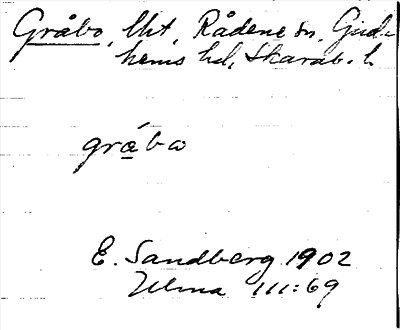 Gråbo, lht, Rådene sn, Gud-
hems hd, Skarab. l.
gràbω
E. Sandberg 1902
Ulma 111:69